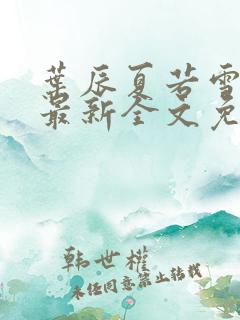 叶辰夏若雪
最新全文免
韩世权
未经同意禁止转载